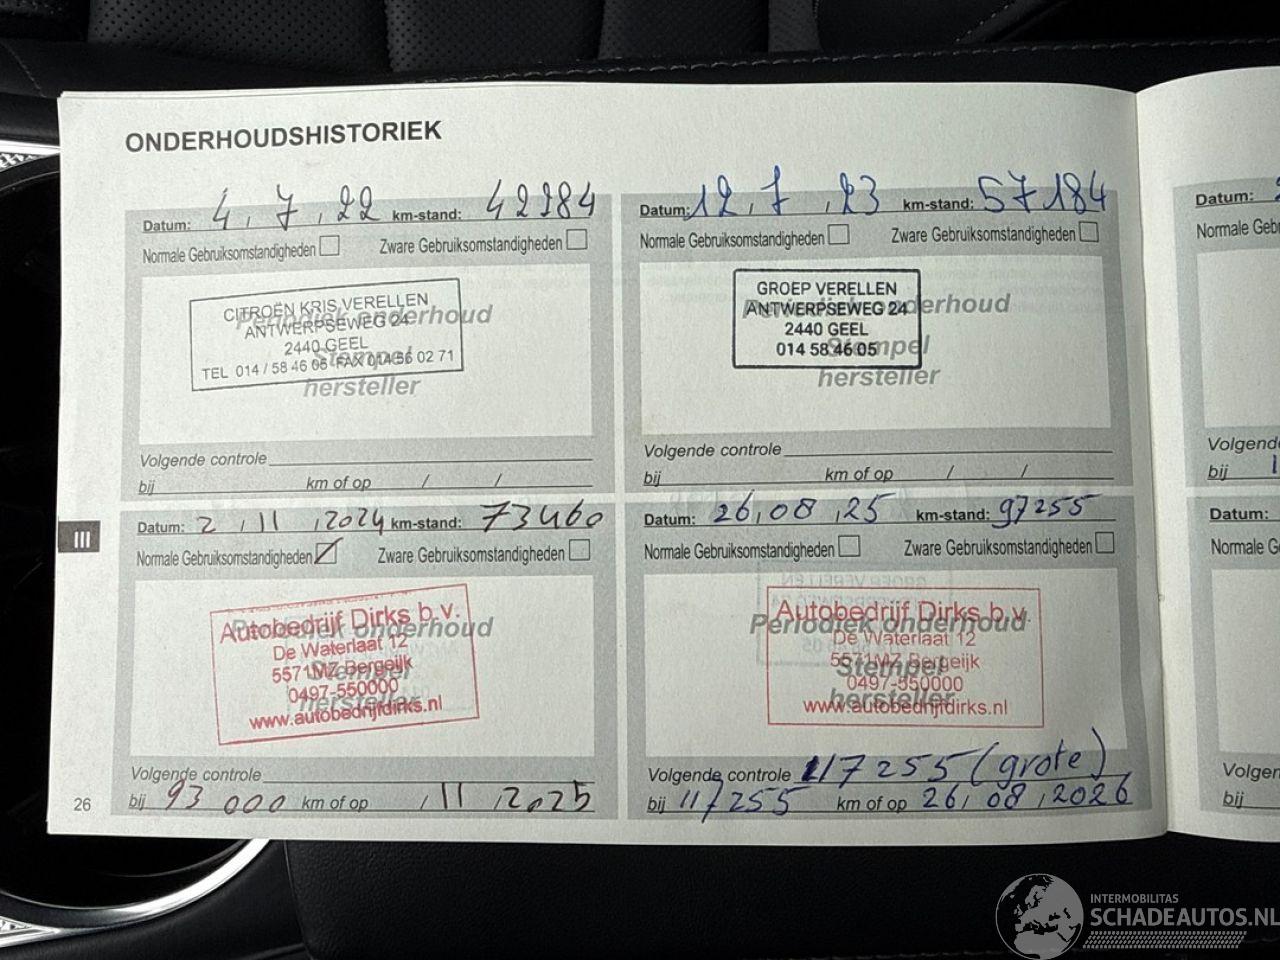 ONDERHOUDSHISTORIEK
Datum: 4, 7, 22 km-stand: 42284
Normale Gebruiksomstandigheden Zware Gebruiksomstandigheden
CITROËN KRIS VERELLEN
ANTWERPSEWEG 24
2440 GEEL
TEL 014 / 58 46 05 FAX 014 56 02 71
Periodiek onderhoud
Stempel
hersteller
Volgende controle
bij km of op / /
Datum: 12, 7, 23 km-stand: 57184
Normale Gebruiksomstandigheden Zware Gebruiksomstandigheden
GROEP VERELLEN
ANTWERPSEWEG 24
2440 GEEL
014 58 46 05
Periodiek onderhoud
Stempel
hersteller
Volgende controle
bij km of op / /
Datum: 2, 11, 2024 km-stand: 73460
Normale Gebruiksomstandigheden Zware Gebruiksomstandigheden
Autobedrijf Dirks b.v.
De Waterlaat 12
5571MZ Bergeijk
0497-550000
www.autobedrijfdirks.nl
Periodiek onderhoud
Stempel
hersteller
Volgende controle
bij 93 000 km of op / 11, 2025
Datum: 26, 08, 25 km-stand: 97255
Normale Gebruiksomstandigheden Zware Gebruiksomstandigheden
Autobedrijf Dirks b.v.
De Waterlaat 12
5571MZ Bergeijk
0497-550000
www.autobedrijfdirks.nl
Periodiek onderhoud
Stempel
hersteller
Volgende controle 117255 (grote)
bij 117255 km of op 26, 08, 2026
III
26
Datum:
Volgende
bij
Datum:
bij
INTERMOBILITAS
SCHADEAUTOS.NL